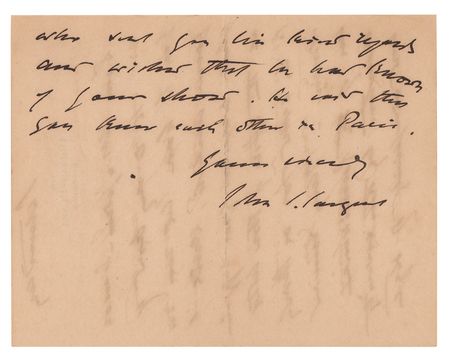 who sent you his kind regards
and wished that he had known
of your show. He said that
you knew each other in Paris.
Yours sincerely
John S. Sargent